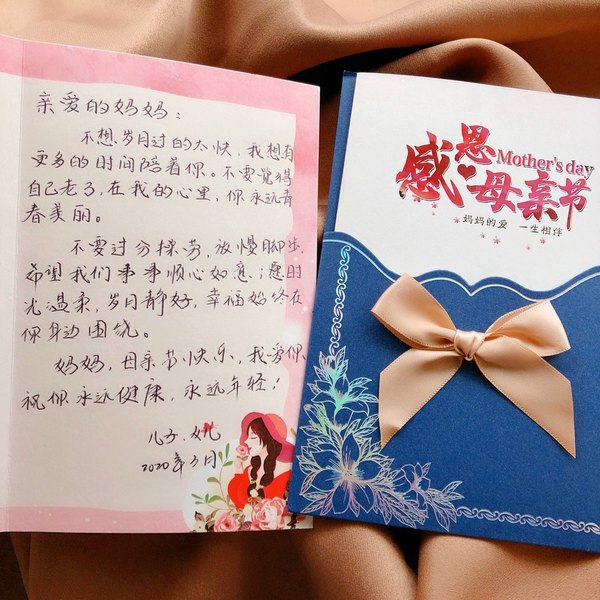 亲爱的妈妈：
不想岁月过的太快，我想有
更多的时间陪着你。不要觉得
自己老了，在我的心里，你永远青
春美丽。
不要过分操劳，放慢脚步，
希望我们事事顺心如意；愿时
光温柔，岁月静好，幸福始终在
你身边围绕。
妈妈，母亲节快乐，我爱你，
祝你永远健康，永远年轻！
儿子、
2020年5月
感恩
Mother's day
母亲节
妈妈的爱 一生相伴